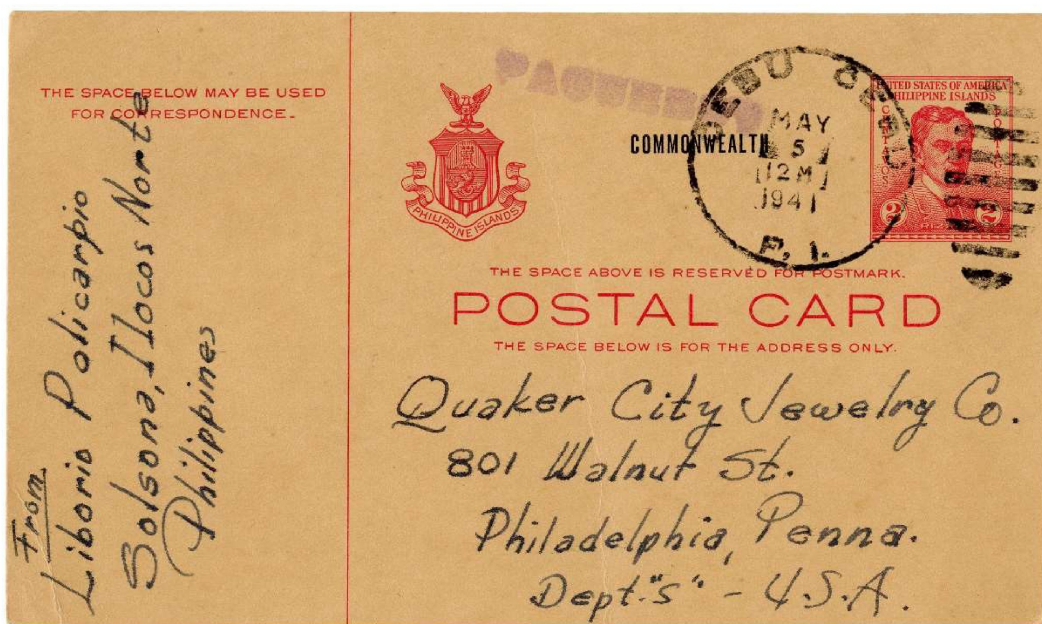 THE SPACE BELOW MAY BE USED
FOR CORRESPONDENCE.
From
Liborio Policarpio
Solsona, Ilocos Norte
Philippines
PHILIPPINE ISLANDS
PAQUEBOT
COMMONWEALTH
CEBU CEBU
MAY
5
12 M
1941
P. I.
UNITED STATES OF AMERICA
PHILIPPINE ISLANDS
CENTAVOS
POSTAGE
2 2
RIZAL
THE SPACE ABOVE IS RESERVED FOR POSTMARK.
POSTAL CARD
THE SPACE BELOW IS FOR THE ADDRESS ONLY.
Quaker City Jewelry Co.
801 Walnut St.
Philadelphia, Penna.
Dept. "S" - U.S.A.